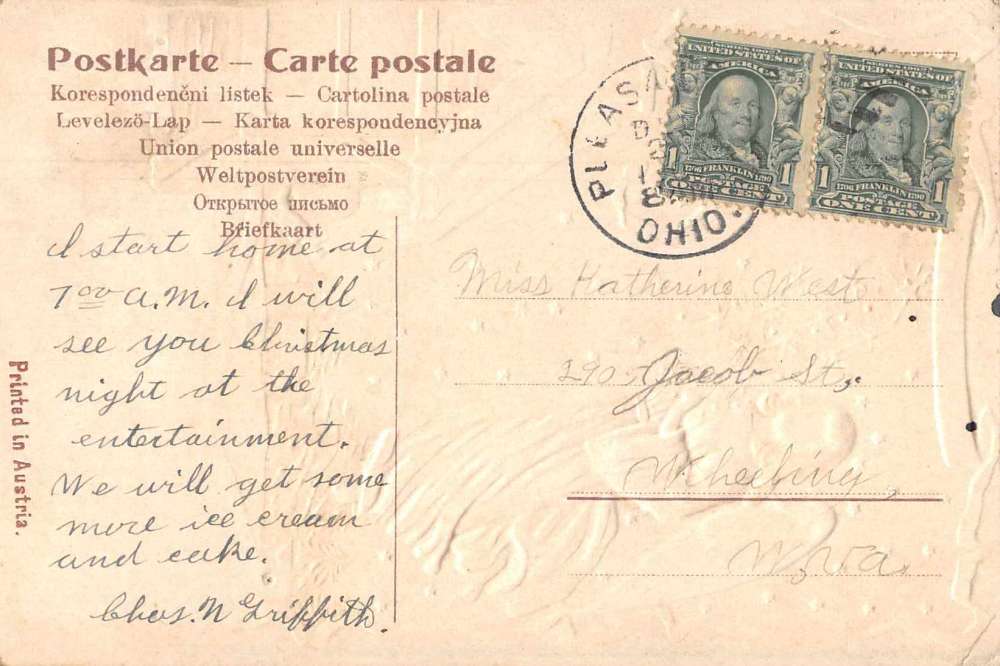 Postkarte – Carte postale
Korespondenčni listek – Cartolina postale
Levelező-Lap – Karta korespondencyjna
Union postale universelle
Weltpostverein
Открытое письмо
Briefkaart
I start home at
7 00 A.M. I will
see you Christmas
night at the
entertainment.
We will get some
more ice cream
and cake.
Chas. N Griffith.
Printed in Austria.
OHIO.
SERIES 1902
UNITED STATES OF
AMERICA
1 1
1706 FRANKLIN 1790
POSTAGE
ONE CENT
SERIES 1902
UNITED STATES OF
AMERICA
1 1
1706 FRANKLIN 1790
POSTAGE
ONE CENT
Miss Katherine West
290 Jacob St,.
Wheeling,
W. Va.